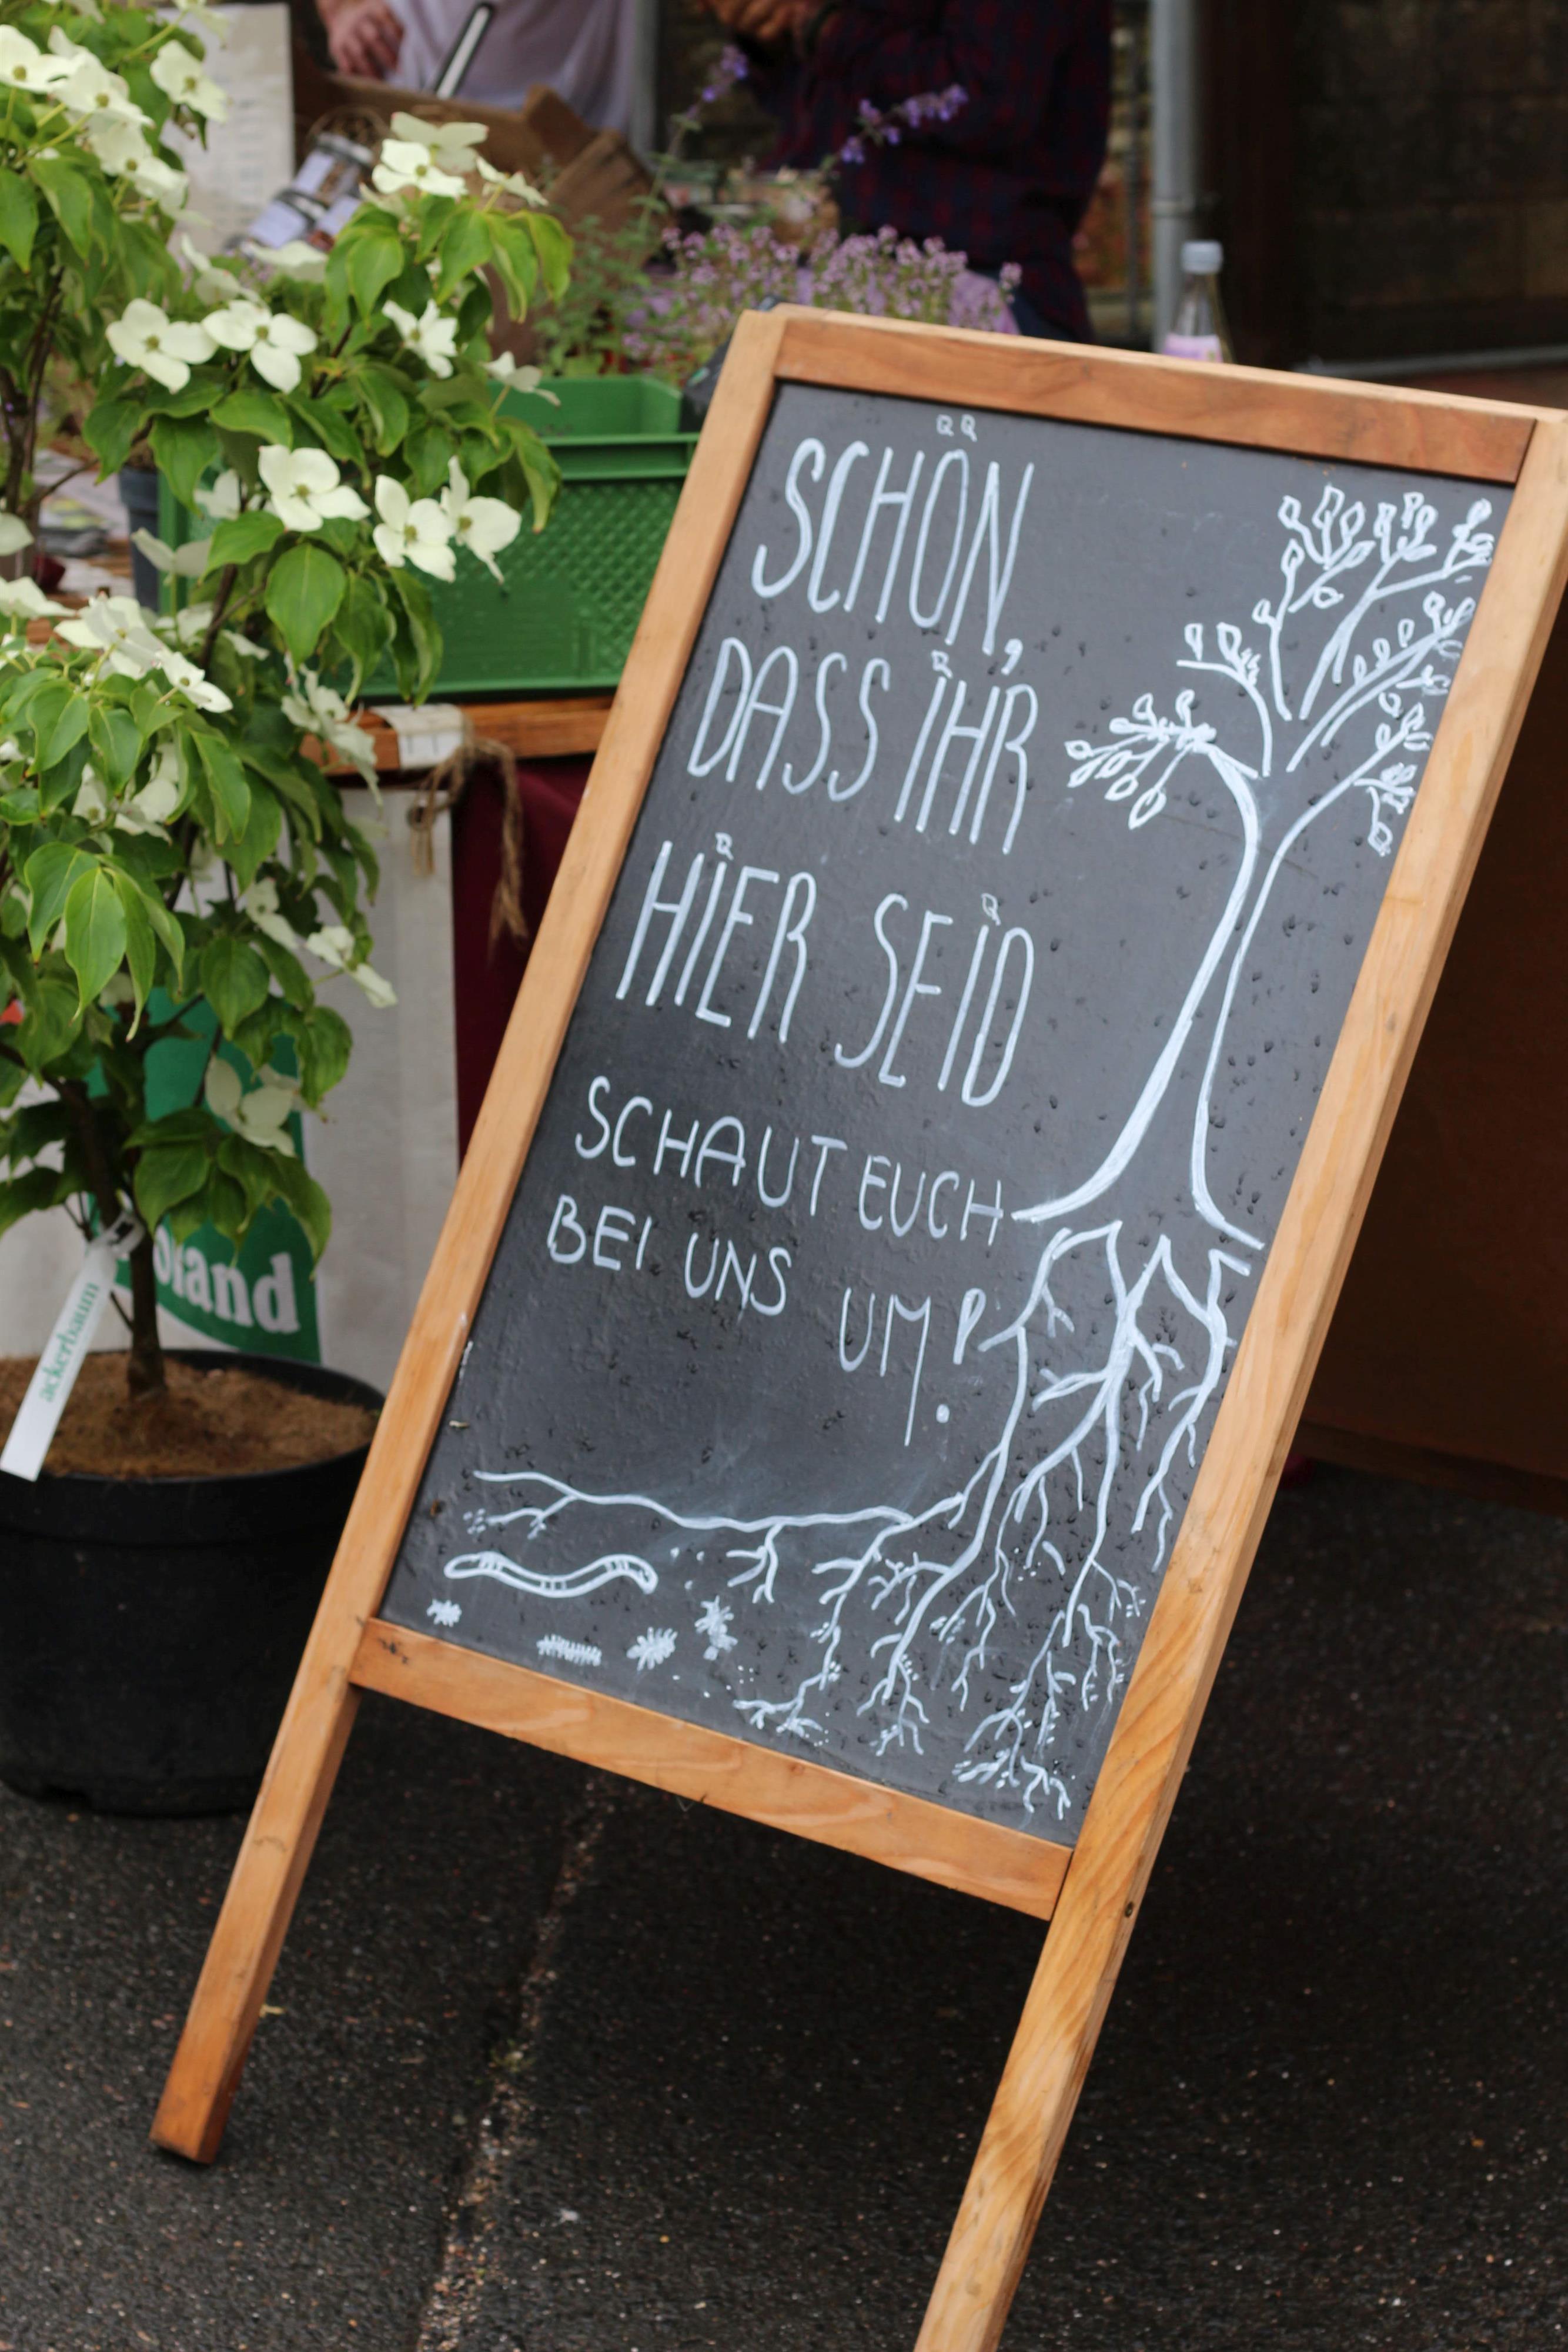 SCHÖN,
DASS IHR
HIER SEID
SCHAUT EUCH
BEI UNS UM!
oland
ackerbaum